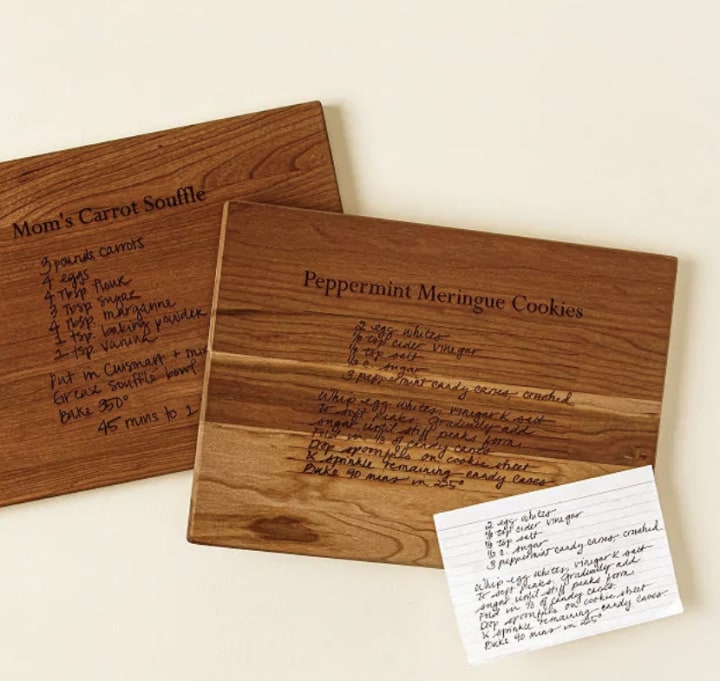 Mom's Carrot Souffle
3 pounds carrots
4 eggs
4 Tbsp flour
3 Tbsp sugar
4 Tbsp. margarine
1 tsp. baking powder
1 tsp. vanilla
Put in Cuisinart + mix
Grease souffle bowl
Bake 350°
45 mins to 1
Peppermint Meringue Cookies
2 egg whites
tsp cider vinegar
tsp salt
c. sugar
3 peppermint candy canes crushed
Whip egg whites, vinegar & salt
To soft peaks. Gradually add
sugar until stiff peaks form.
Fold in of candy canes
Drop spoonfuls on cookie street
& sprinkle remaining candy canes
Bake 90 mins in 225°
2 egg whites
tsp cider vinegar
tsp salt
c. sugar
3 peppermint candy canes crushed
Whip egg whites, vinegar & salt
To soft peaks. Gradually add
sugar until stiff peaks form.
Fold in of candy canes
Drop spoonfuls on cookie street
& sprinkle remaining candy canes
Bake 90 mins in 225°